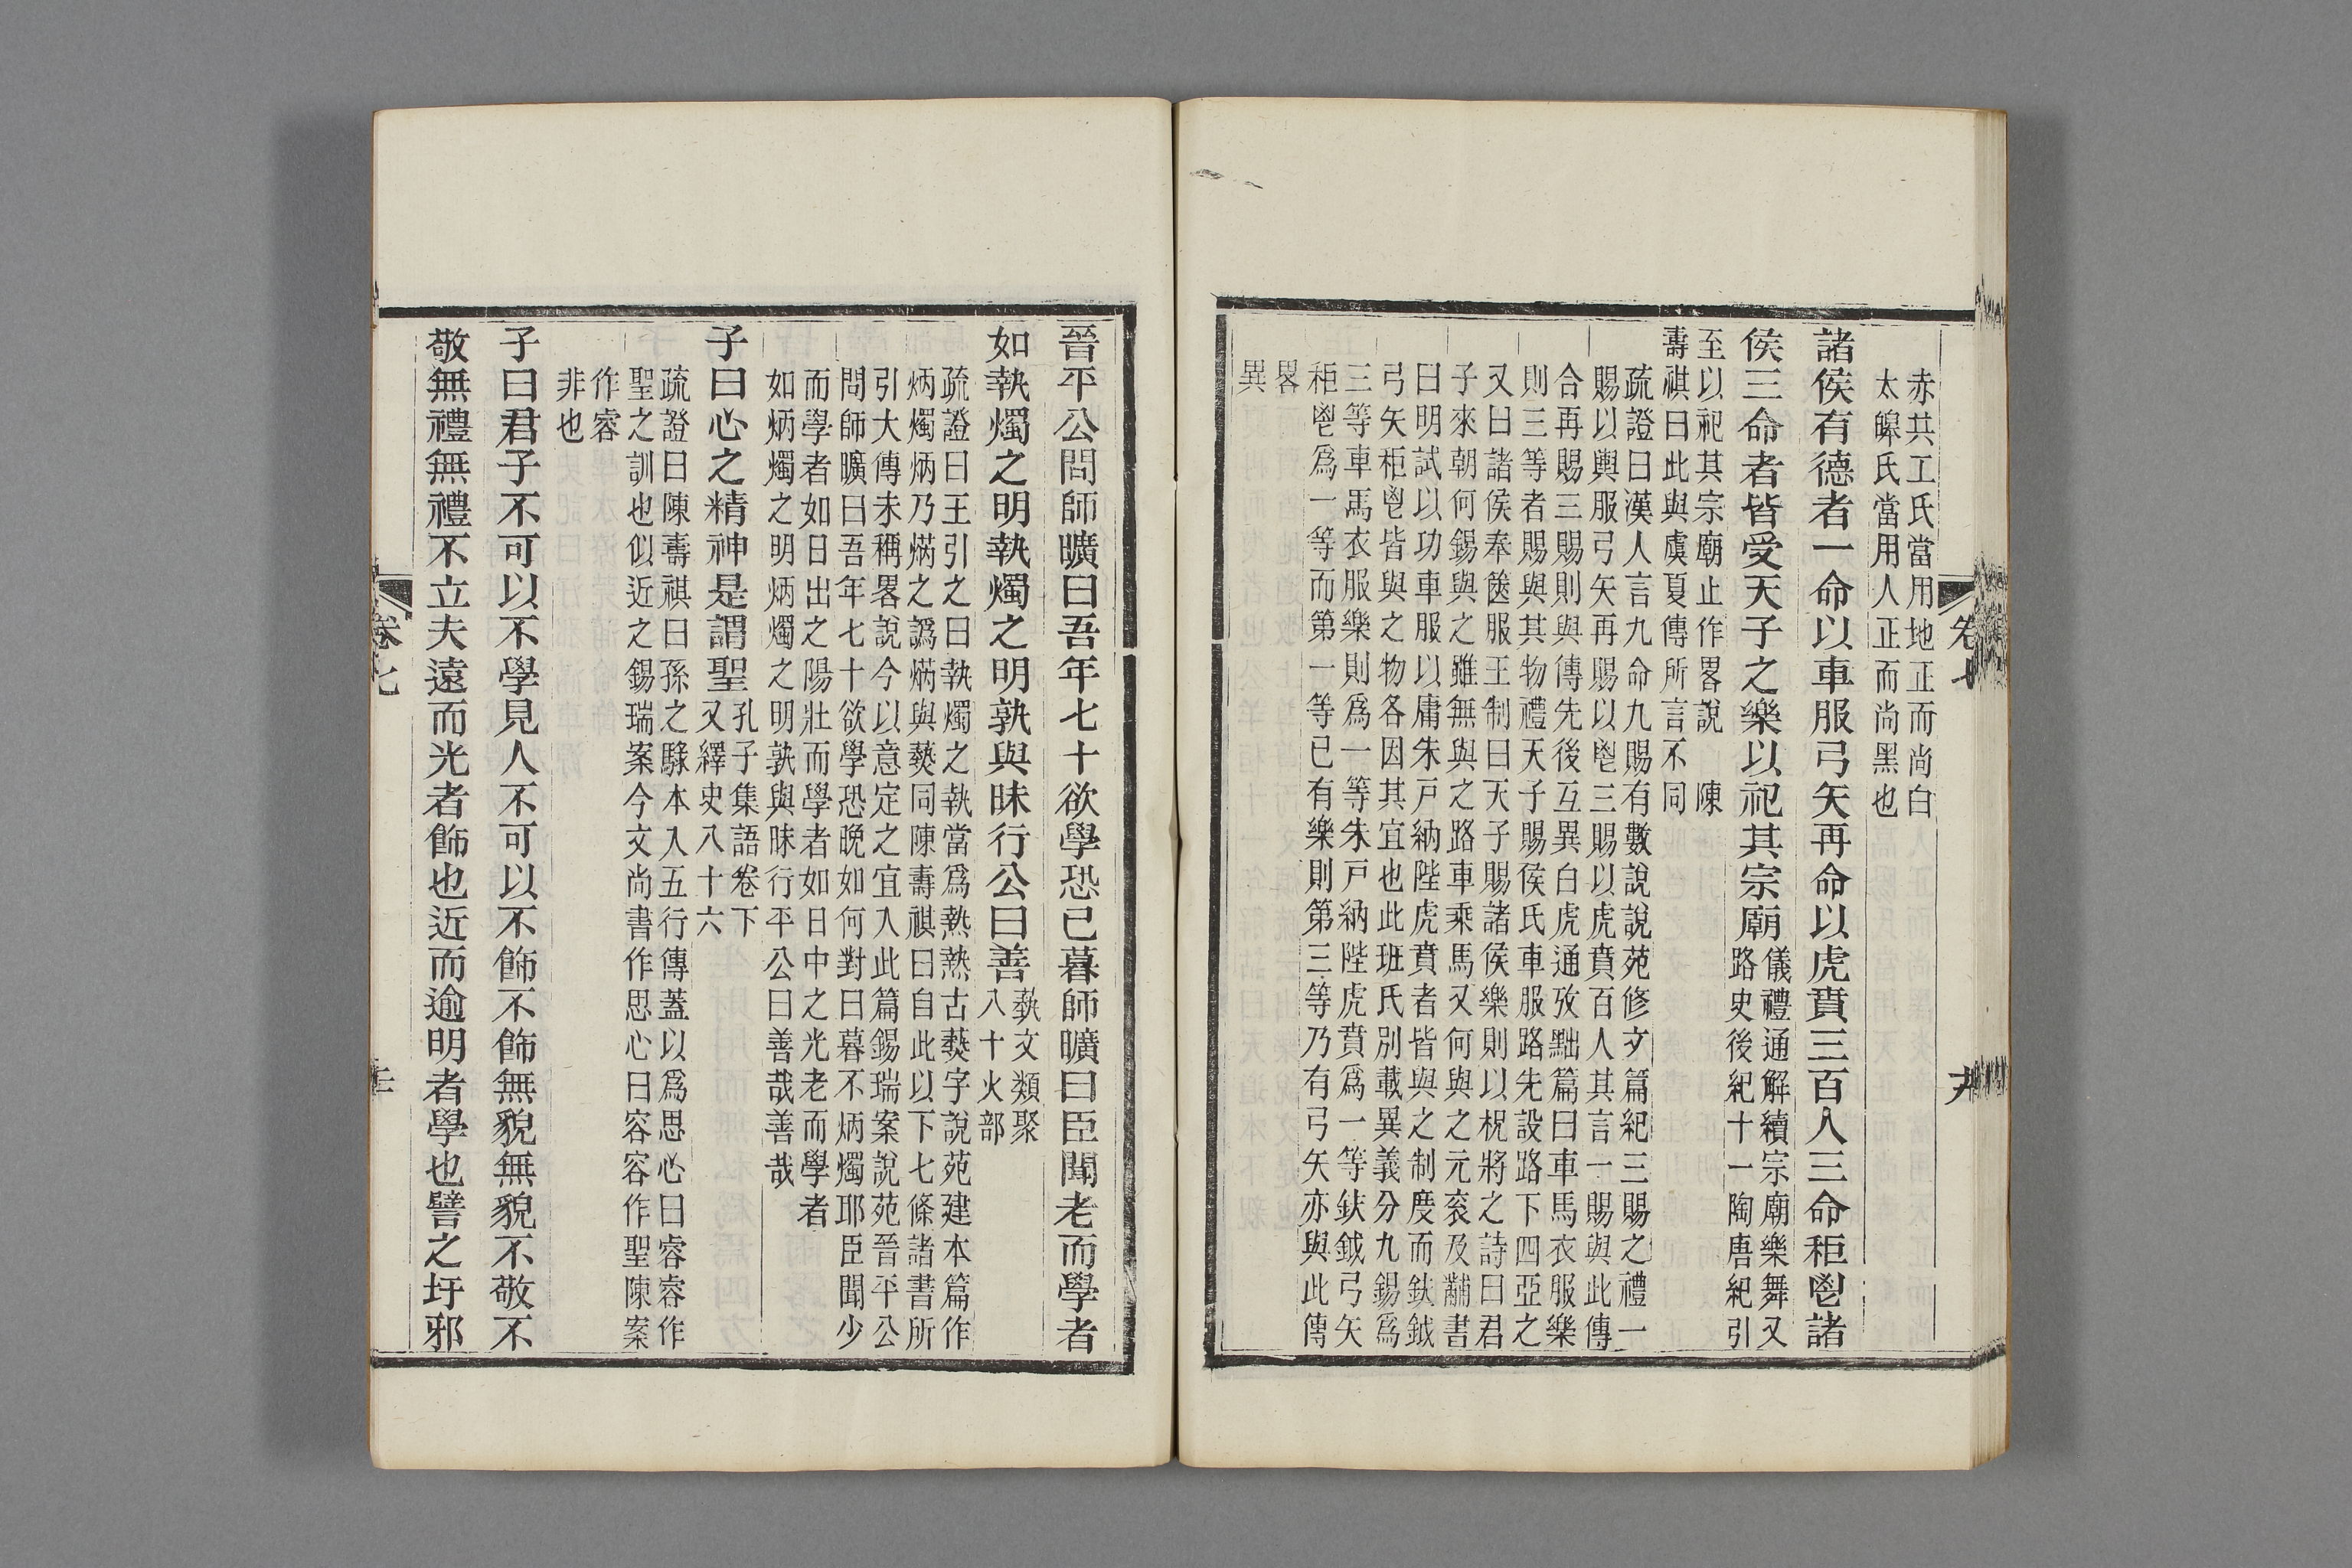 赤共工氏當用地正而尚白
太皞氏當用人正而尚黑也
諸侯有德者一命以車服弓矢再命以虎賁三百人三命秬鬯諸
侯三命者皆受天子之樂以祀其宗廟
儀禮通解續宗廟樂舞又
路史後紀十一陶唐紀引
至以祀其宗廟止作畧說 陳
壽祺曰此與虞夏傳所言不同
疏證曰漢人言九命九賜有數說說苑修文篇紀三賜之禮一
賜以輿服弓矢再賜以鬯三賜以虎賁百人其言一賜與此傳
合再賜三賜則與傳先後互異白虎通攷黜篇曰車馬衣服樂
則三等者賜與其物禮天子賜侯氏車服路先設路下四亞之
又曰諸侯奉篋服王制曰天子賜諸侯樂則以柷將之詩曰君
子來朝何錫與之雖無與之路車乘馬又何與之元衮及黼書
曰明試以功車服以庸朱戸納陛虎賁者皆與之制度而鈇鉞
弓矢秬鬯皆與之物各因其宜也此班氏別載異義分九錫爲
三等車馬衣服樂則爲一等朱戸納陛虎賁爲一等鈇鉞弓矢
秬鬯爲一等而第一等已有樂則第三等乃有弓矢亦與此傳
畧
異
卷七
晉平公問師曠曰吾年七十欲學恐已暮師曠曰臣聞老而學者
如執燭之明執燭之明孰與昧行公曰善
藝文類聚
八十火部
疏證曰王引之曰執燭之執當爲爇爇古爇字說苑建本篇作
炳燭炳乃焫之譌焫與爇同陳壽祺曰自此以下七條諸書所
引大傳未稱畧說今以意定之宜入此篇錫瑞案說苑晉平公
問師曠曰吾年七十欲學恐晚如何對曰暮不炳燭耶臣聞少
而學者如日出之陽壯而學者如日中之光老而學者
如炳燭之明炳燭之明孰與昧行平公曰善哉善哉
子曰心之精神是謂聖
孔子集語卷下
又繹史八十六
疏證曰陳壽祺曰孫之騄本入五行傳蓋以爲思心曰容容作
聖之訓也似近之錫瑞案今文尚書作思心曰容容作聖陳案
作容
非也
子曰君子不可以不學見人不可以不飾不飾無貌無貌不敬不
敬無禮無禮不立夫遠而光者飾也近而逾明者學也譬之圩邪
卷七